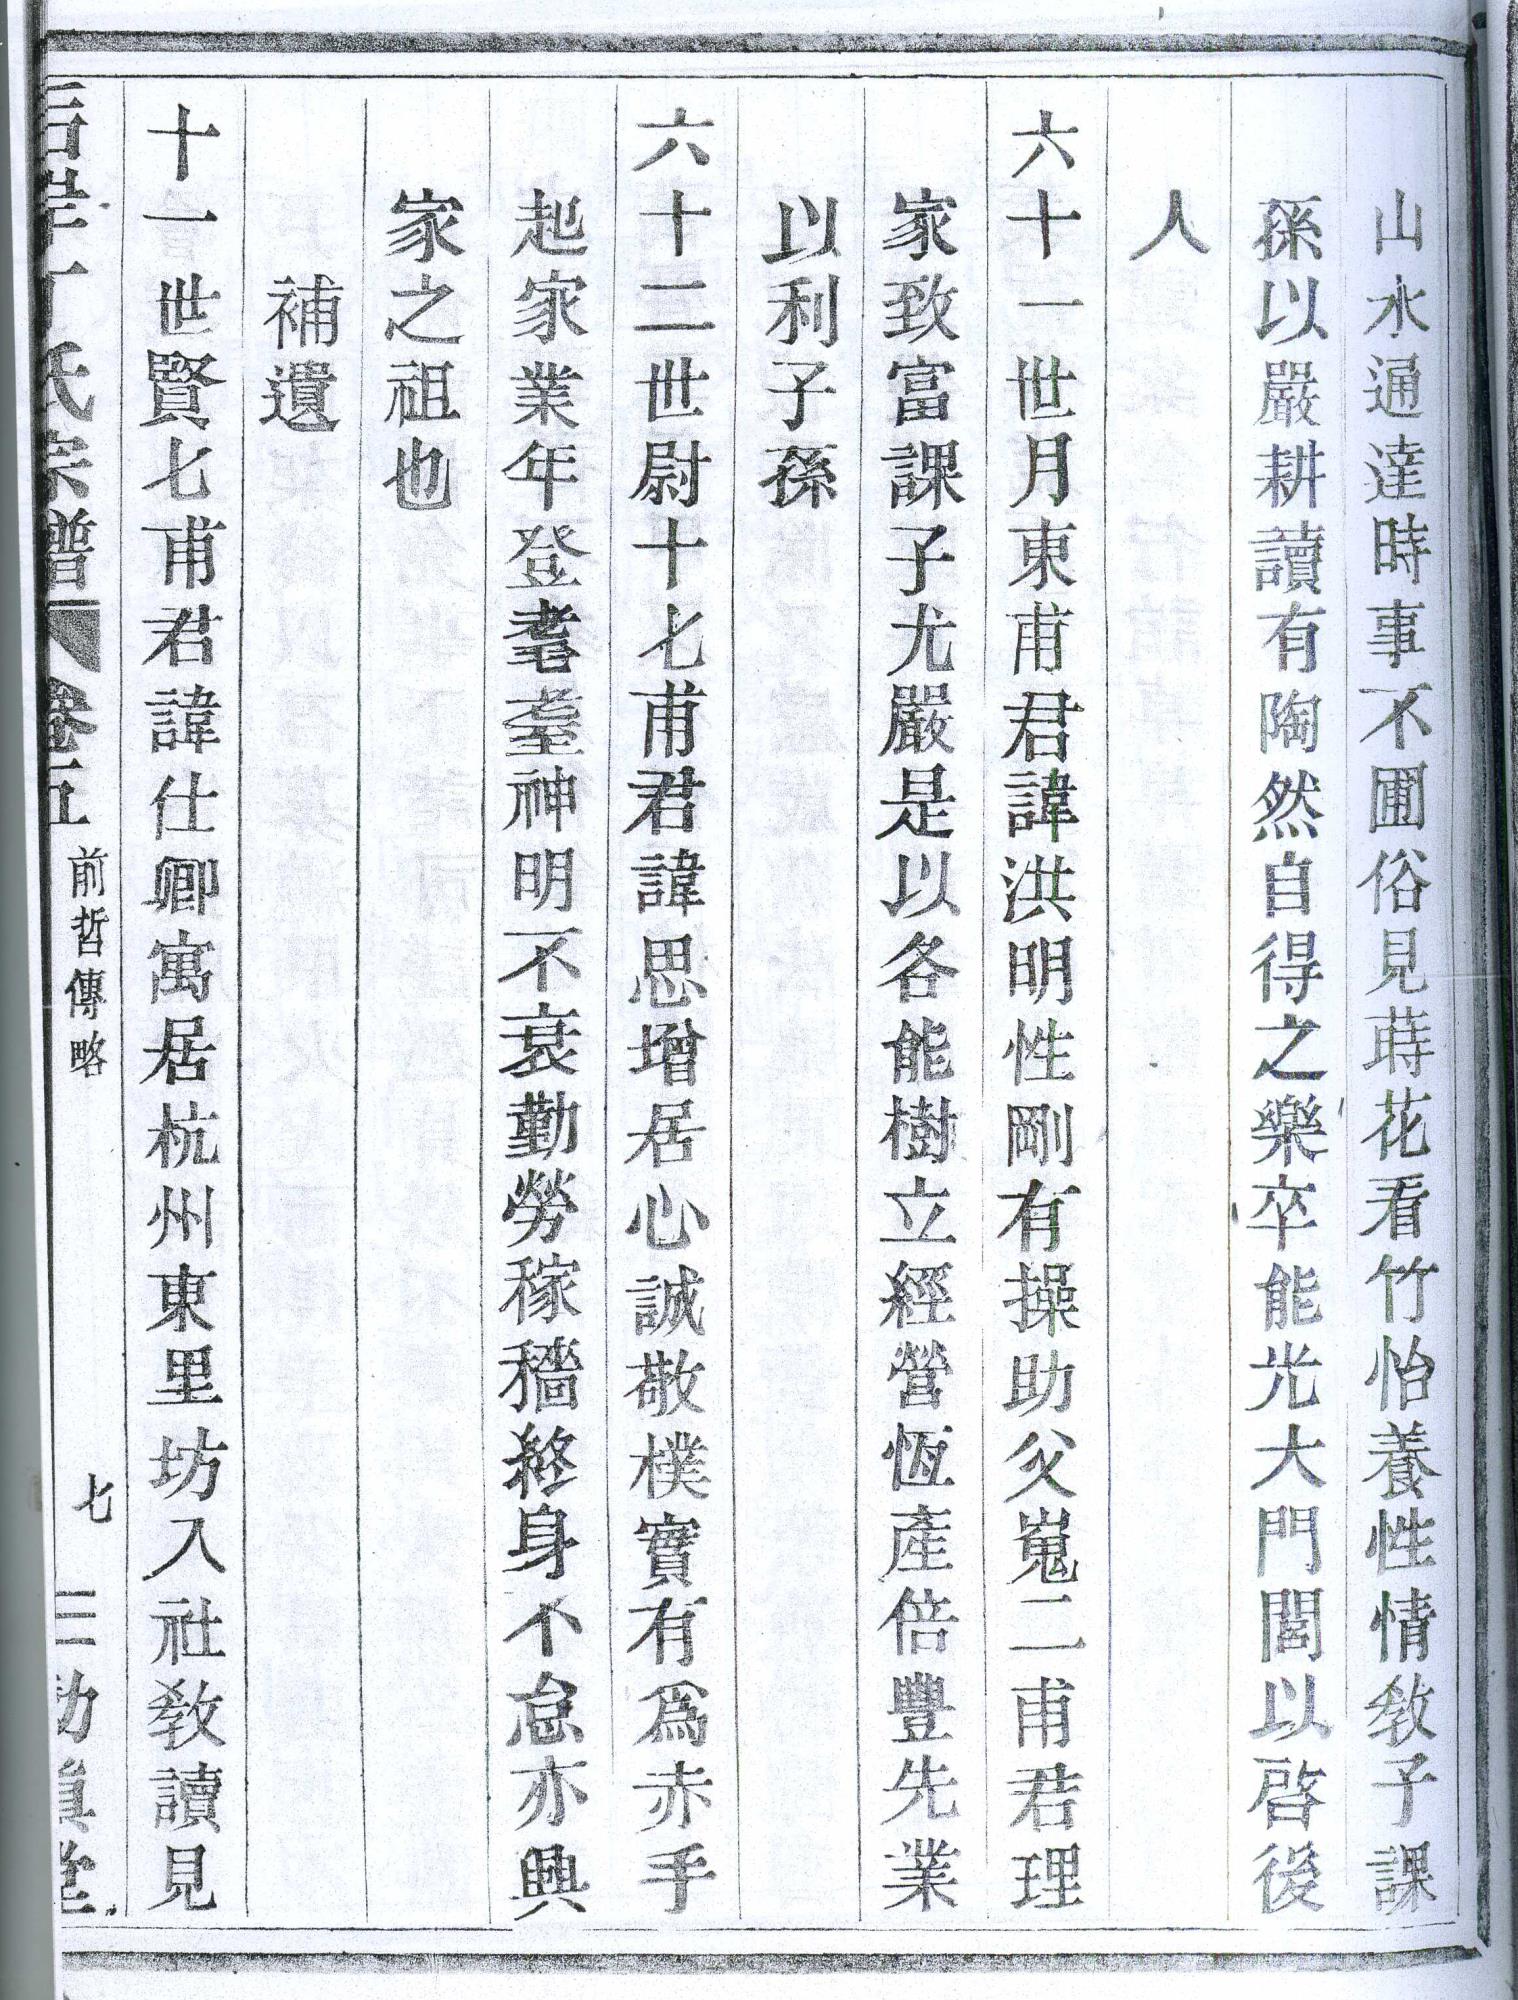 山水通達時事不囿俗見蒔花看竹怡養性情敎子課
孫以嚴耕讀有陶然自得之樂卒能光大門閭以啓後
人
六十一世月東甫君諱洪明性剛有操助父嵬二甫君理
家致富課子尤嚴是以各能樹立經營恆產倍豐先業
以利子孫
六十二世尉十七甫君諱思增居心誠敬樸實有爲赤手
起家業年登耄耋神明不衰勤勞稼穡終身不怠亦興
家之祖也
補遺
十一世賢七甫君諱仕卿寓居杭州東里坊入社敎讀見
氏宗譜 卷五 前哲傳略 七 三勅眞堂